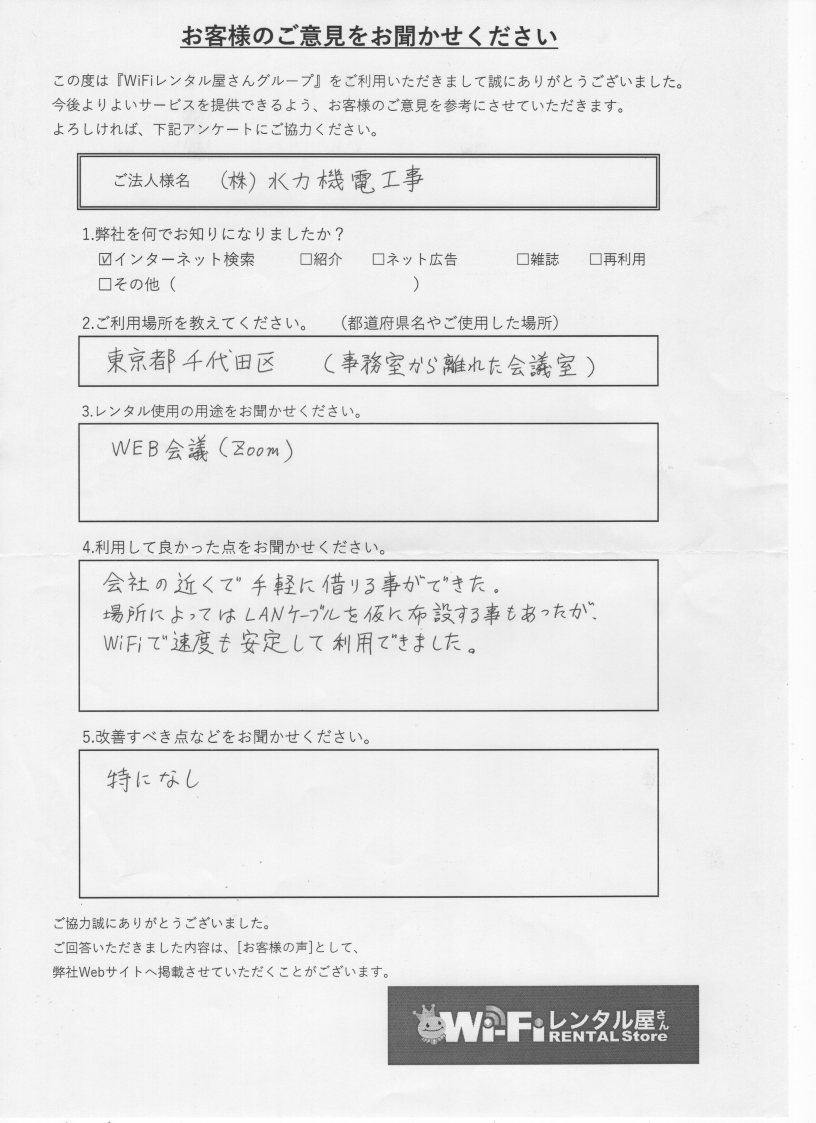 お客様のご意見をお聞かせください
この度は『WiFiレンタル屋さんグループ』をご利用いただきまして誠にありがとうございました。
今後よりよいサービスを提供できるよう、お客様のご意見を参考にさせていただきます。
よろしければ、下記アンケートにご協力ください。
ご法人様名 (株)水力機電工事
1.弊社を何でお知りになりましたか？
☑インターネット検索 □紹介 □ネット広告 □雑誌 □再利用
□その他（ ）
2.ご利用場所を教えてください。 （都道府県名やご使用した場所）
東京都千代田区 (事務室から離れた会議室)
3.レンタル使用の用途をお聞かせください。
WEB会議(Zoom)
4.利用して良かった点をお聞かせください。
会社の近くで手軽に借りる事ができた。
場所によってはLANケーブルを仮に布設する事もあったが、
WiFiで速度も安定して利用できました。
5.改善すべき点などをお聞かせください。
特になし
ご協力誠にありがとうございました。
ご回答いただきました内容は、[お客様の声]として、
弊社Webサイトへ掲載させていただくことがございます。
Wi-Fiレンタル屋さん
RENTAL Store